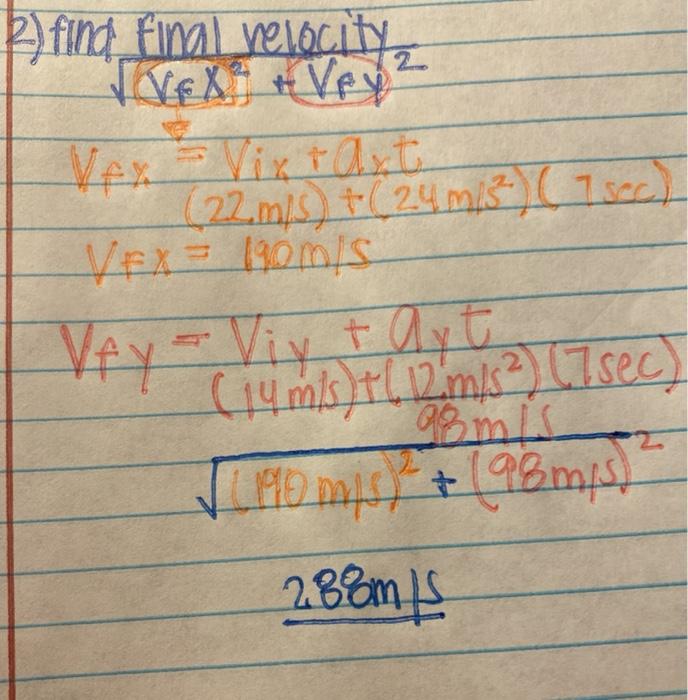 2) find final velocity
√VFX² + VFy²
VFX = Vix + axt
(22m/s) + (24m/s²)(7sec)
VFX = 190m/s
Vfy = Viy + ayt
(14m/s)+(12m/s²)(7sec)
98m/s
√(190m/s)² + (98m/s)²
288m/s